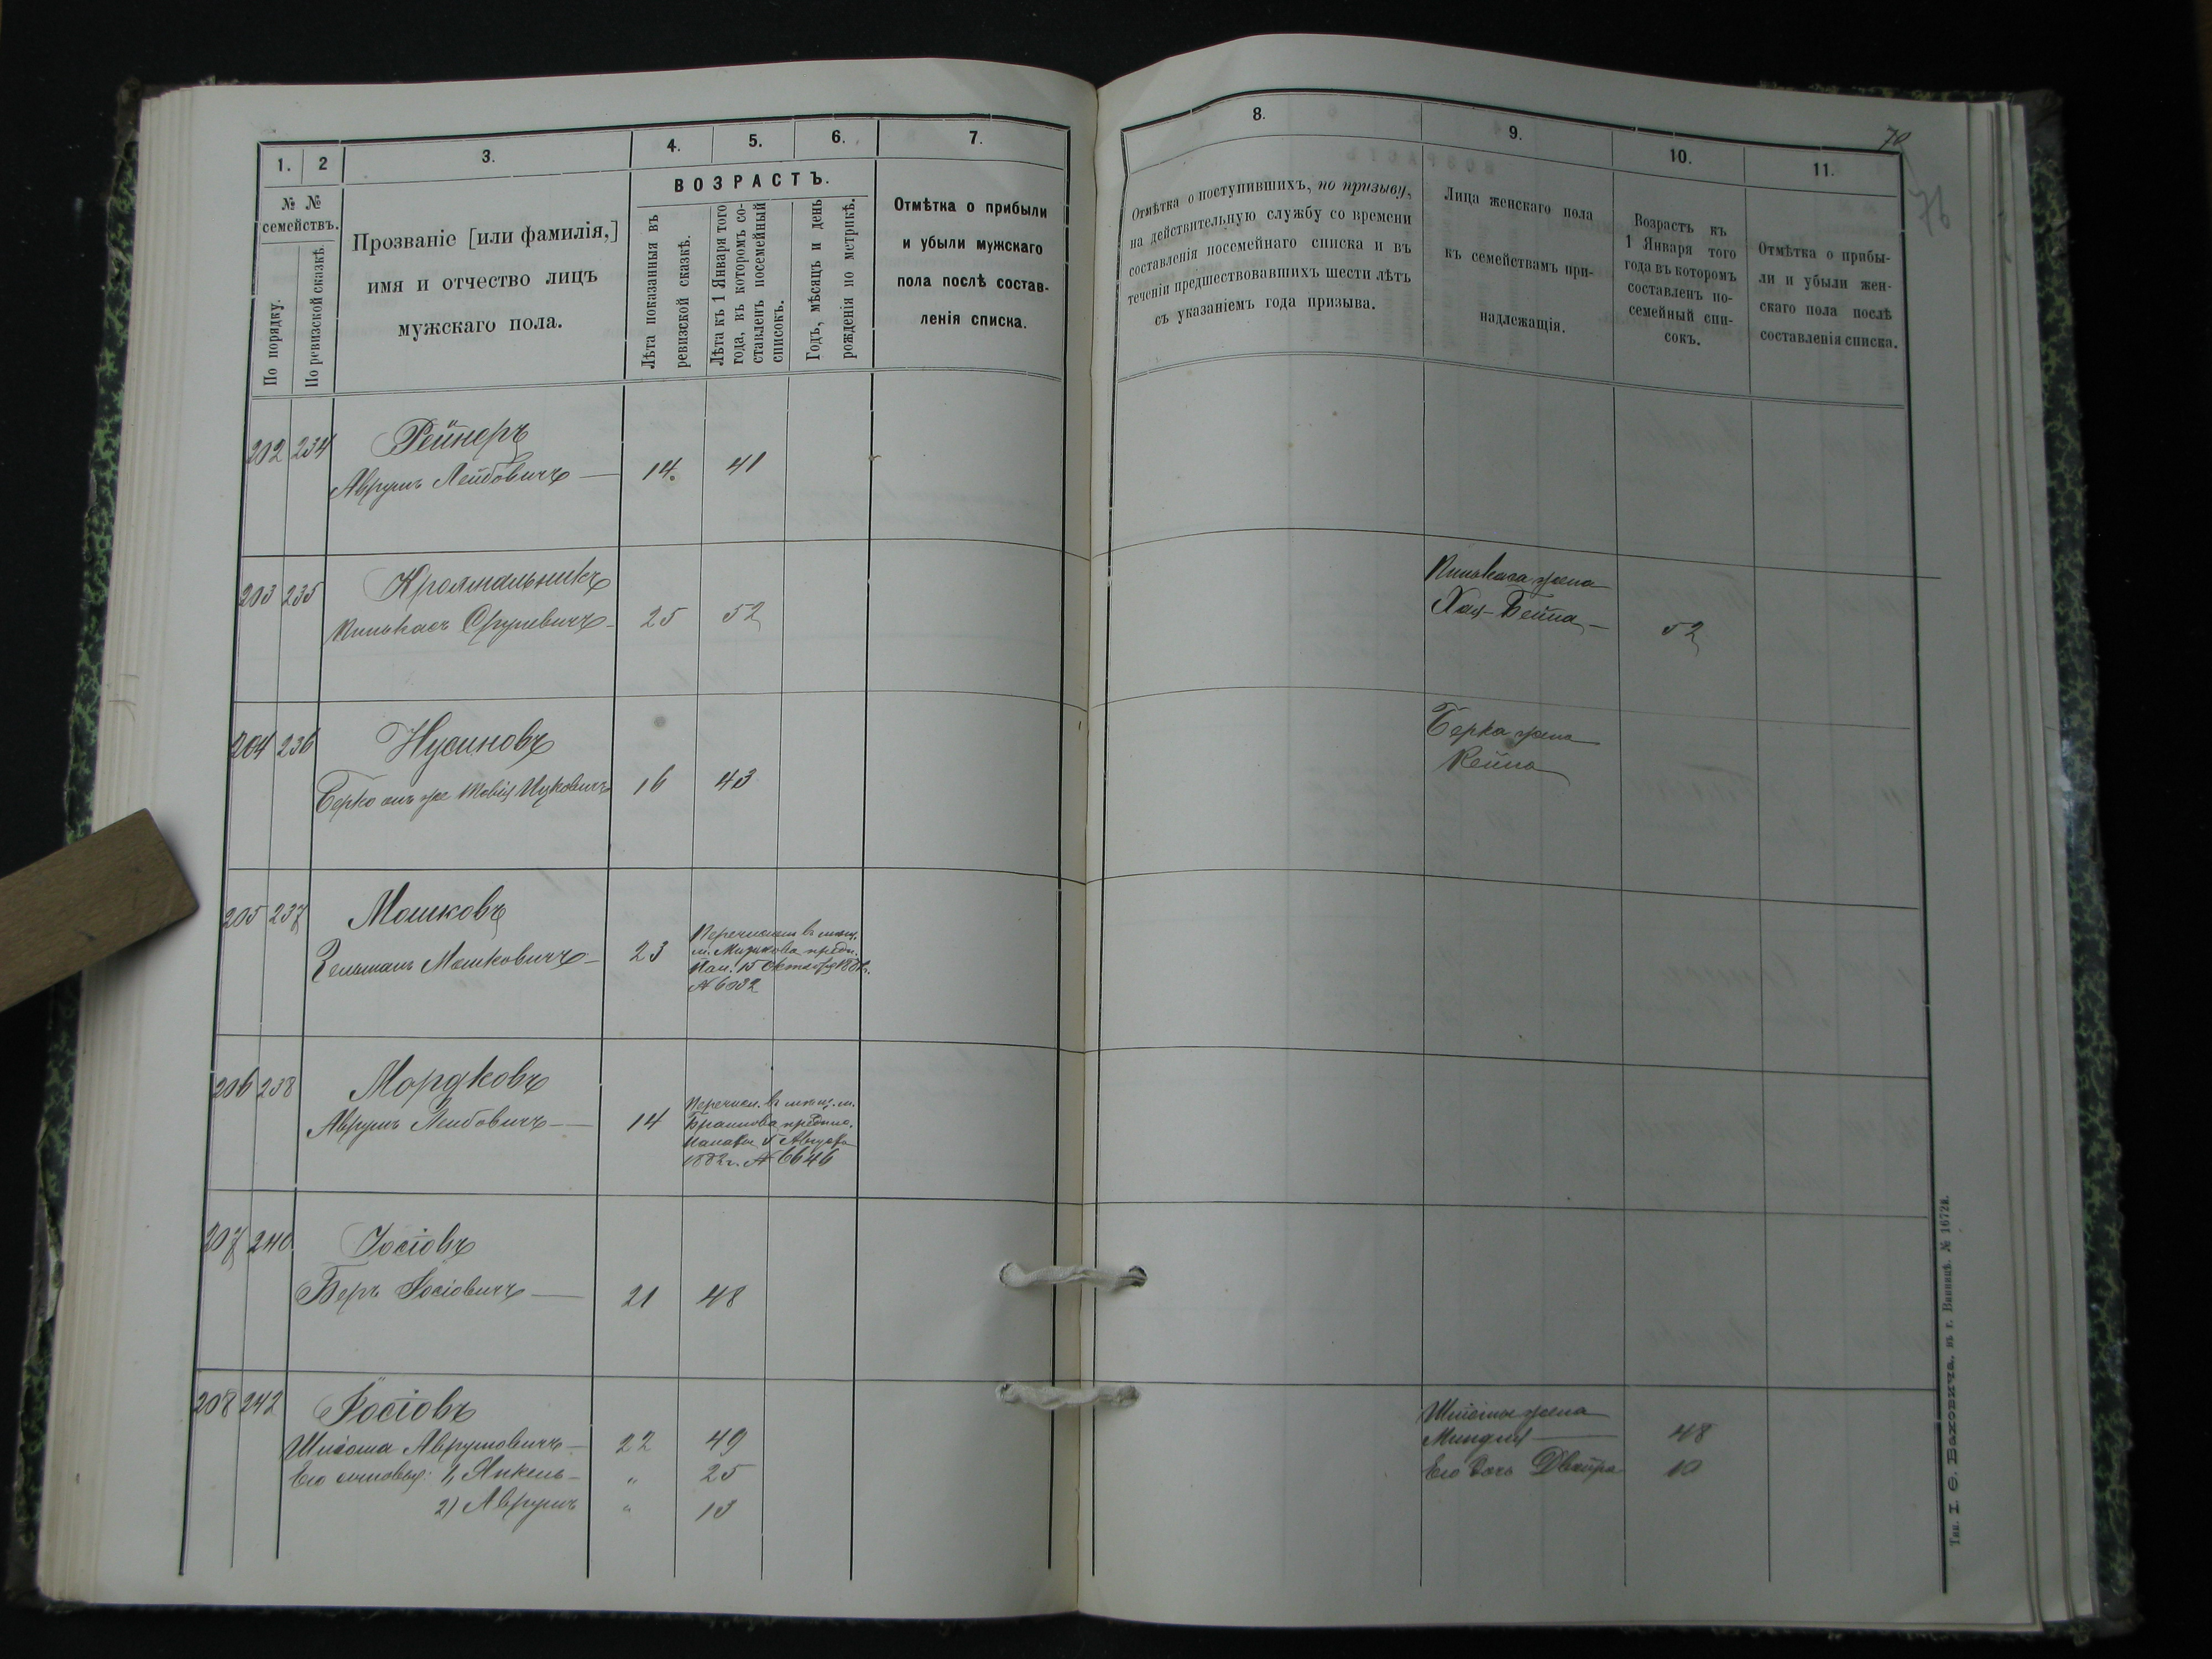 1.
2
3.
4.
5.
6.
7.
№ №
семействъ.
По порядку.
По ревизской сказкѣ.
Прозваніе [или фамилія,]
имя и отчество лицъ
мужскаго пола.
ВОЗРАСТЪ.
Лѣта показанныя въ
ревизской сказкѣ.
Лѣта къ 1 Января того
года, въ которомъ со-
ставленъ посемейный
списокъ.
Годъ, мѣсяцъ и день
рожденія по метрикѣ.
Отмѣтка о прибыли
и убыли мужскаго
пола послѣ состав-
ленія списка.
202 234 Рейнеръ
Аврумъ Лейбовичъ — 14. 41
203 235 Кроммальникъ
Пинькасъ Сруневичъ - 25 52
204 236 Нусиновъ
Берко онъ же Товія Ицковичъ 16 43
205 237 Мошковъ
Зельманъ Мошковичъ - 23
Перечисленъ в мѣщ.
№ 6032
206 238 Мордковъ
Аврумъ Лейбовичъ — 14
Перечисл. в мѣщ. м.
Браилова предпис.
Палаты 5 Августа
1882 г. № 6646
207 240 Іосіовъ
Беръ Іосіовичъ — 21 48
208 242 Іосіовъ
Шліома Аврумовичъ — 22 49
Его сыновья: 1, Янкель — „ 25
2) Аврумъ „ 13
8.
9.
10.
11.
70
76
Отмѣтка о поступившихъ, по призыву,
на действительную службу со времени
составленія посемейнаго списка и въ
теченіи предшествовавшихъ шести лѣтъ
съ указаніемъ года призыва.
Лица женскаго пола
къ семействамъ при-
надлежащія.
Возрастъ къ
1 Января того
года въ которомъ
составленъ по-
семейный спи-
сокъ.
Отмѣтка о прибы-
ли и убыли жен-
скаго пола послѣ
составленія списка.
Пинькаса жена
Хая-Бейла — 52
Берка жена
Кейла
Шліомы жена
Миндля — 48
Его дочь Двейра 10
Тип. І. Ѳ. Баховича, въ г. Винницѣ. № 1672я.